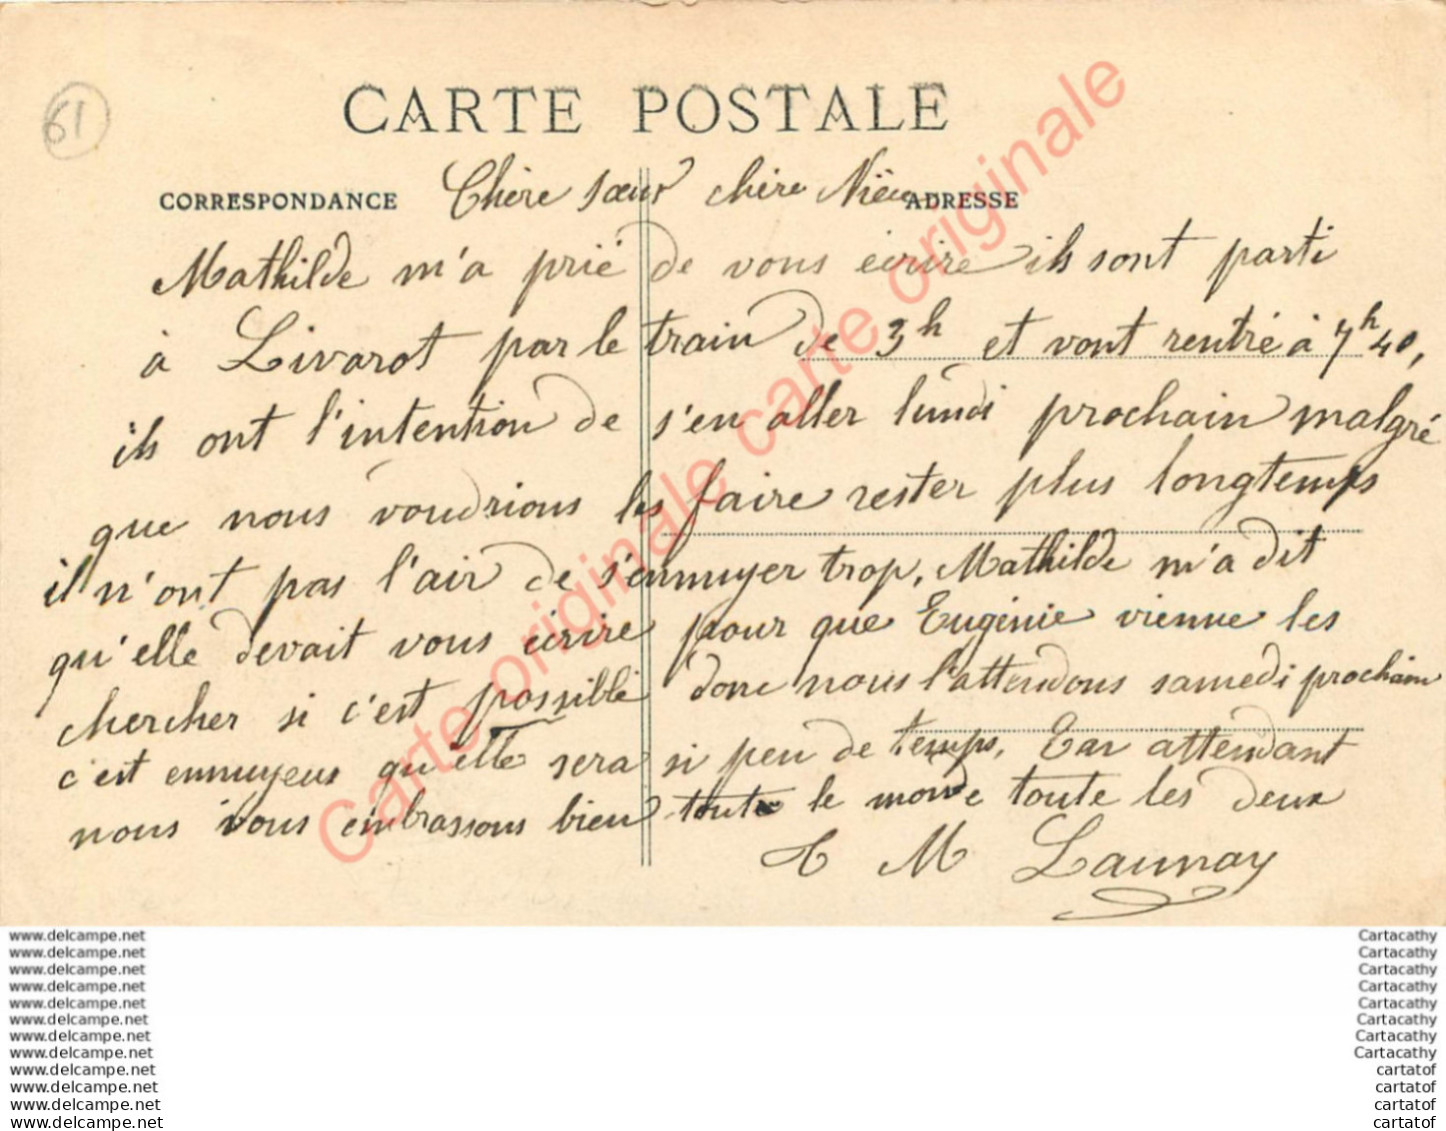 61
CARTE POSTALE
CORRESPONDANCE
ADRESSE
Chère sœur chère Nièce
Mathilde m'a prié de vous écrire ils sont parti
à Livarot par le train de 3h et vont rentré à 7h 40,
ils ont l'intention de s'en aller lundi prochain malgré
que nous voudrions les faire rester plus longtemps
il n'ont pas l'air de s'ennuyer trop, Mathilde m'a dit
qu'elle devait vous écrire pour que Eugénie vienne les
chercher si c'est possible donc nous l'attendons samedi prochain
c'est ennuyeus qu'elle sera si peu de temps, Ear attendant
nous vous embrassons bien toute le monde toute les deux
M Launay
Carte originale carte originale carte originale
www.delcampe.net
www.delcampe.net
www.delcampe.net
www.delcampe.net
www.delcampe.net
www.delcampe.net
www.delcampe.net
www.delcampe.net
www.delcampe.net
www.delcampe.net
www.delcampe.net
www.delcampe.net
Cartacathy
Cartacathy
Cartacathy
Cartacathy
Cartacathy
Cartacathy
Cartacathy
Cartacathy
cartatof
cartatof
cartatof
cartatof